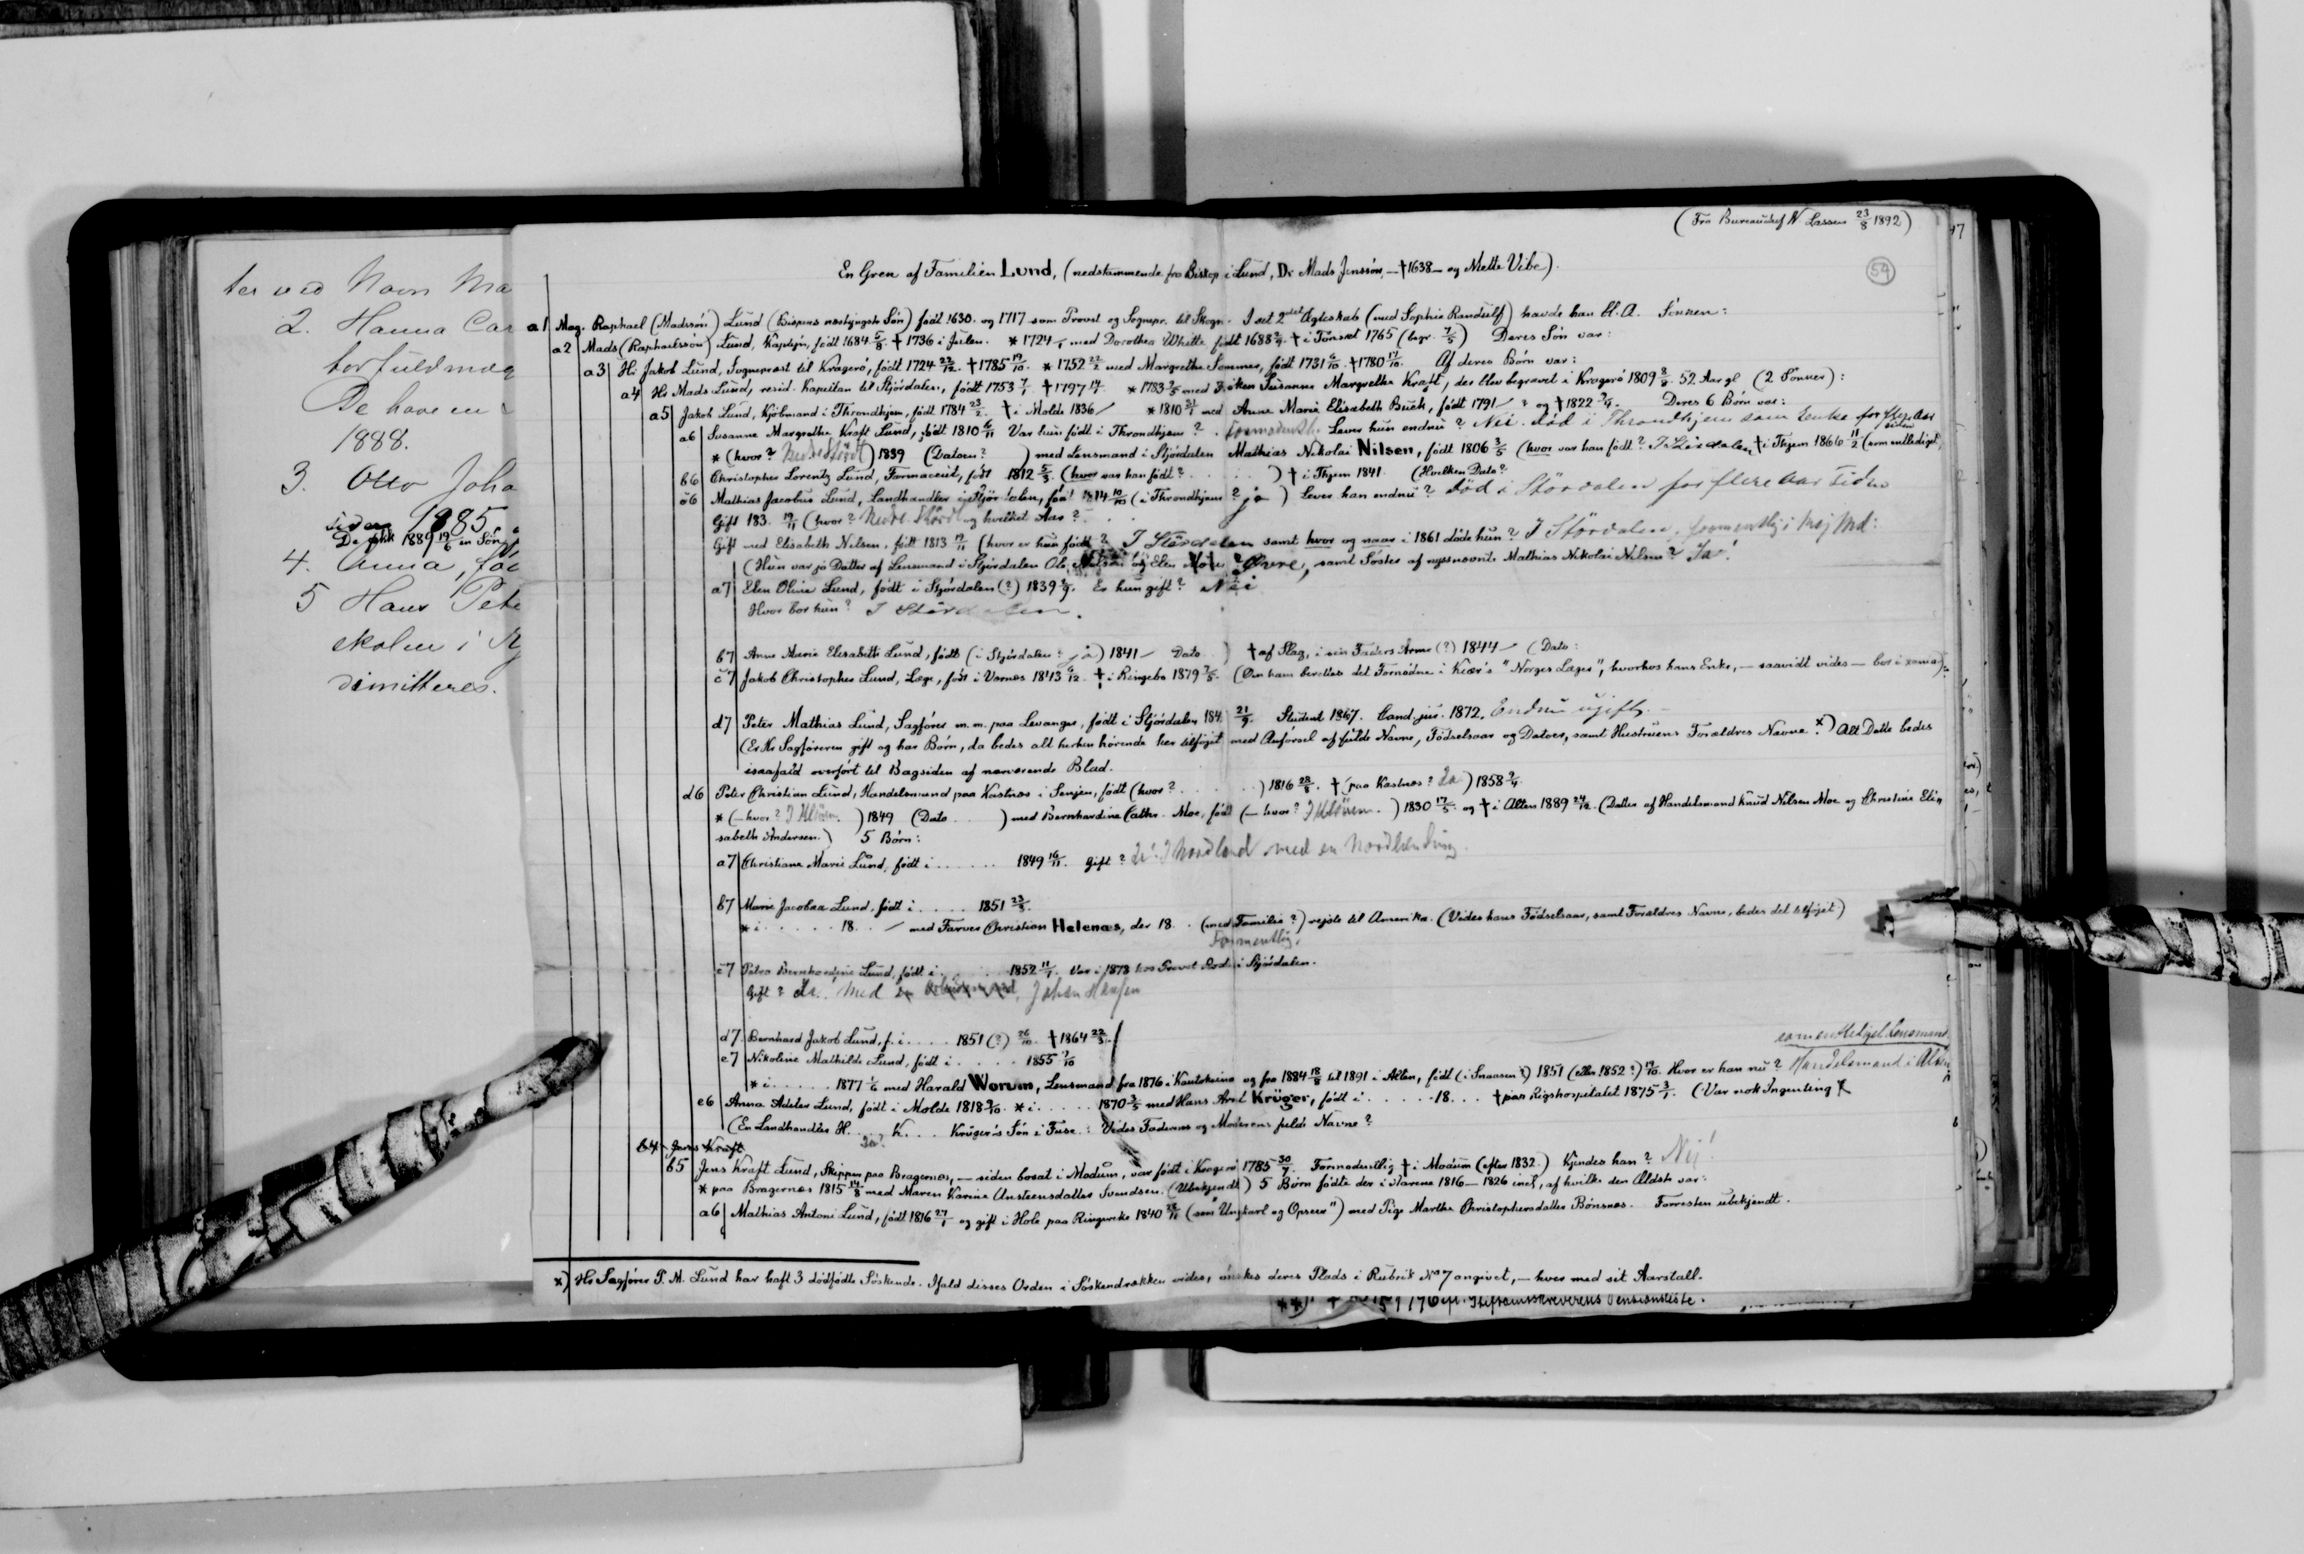 ter ved Navn Ma
2. Hanna Car
torfuldmæg
De have en
1888.
3. Otto Joha
siden 1885.
De fik 1889 19/6 en Søn
4. Anna, fød
5 Hans Pete
skolen i
dimitteres.
(Fra Bureauchef N. Lassen 23/8 1892)
54
En Gren af Familien Lund, (nedstammende fra Biskop i Lund, Dr Mads Jenssøn, — †1638 — og Mette Vibe).
a1 Mag. Raphael (Madssøn) Lund (Bispens næstyngste Søn) født 1630. og 1717 som Provst og Sognepr. til Skogn. I sit 2det Ægteskab (med Sophie Randulf) havde han bl. A. Sønnen:
a2 Mads (Raphaelssøn) Lund, Kaptejn, født 1684 5/8. † 1736 i Julen. * 1724 med Dorothea White født 1688 † i Fonset 1765 (begr. 7/5) Deres Søn var:
a3 Hr Jakob Lund, Sogneprest til Kragerø, født 1724 22/12. † 1785 19/10. * 1752 22/2 med Margrethe Sommer, født 1731 6/10. † 1780 17/10. Af deres Børn var:
a4 Hr Mads Lund, resid. Kapellan til Stjørdalen, født 1753 7/1. † 1797 * 1783 med Frøken Susanne Margrethe Kraft, der blev begravet i Kragerø 1809 8/9. 52 Aar gl (2 Sønner):
a5 Jakob Lund, Kjøbmand i Throndhjem, født 1784 23/2. † i Molde 1836 * 1810 31/1 med Anne Marie Elisabeth Buck, født 1791 ? og † 1822 Deres 6 Børn var:
a6 Susanne Margrethe Kraft Lund, født 1810 6/11 Var hun født i Throndhjem? formodentlig. Lever hun endnu? Nei. død i Throndhjem som Enke for flere Aar siden
* (hvor? Nedre Størd) 1839 (Datoen? ) med Lensmand i Stjørdalen Mathias Nikolai Nilsen, født 1806 3/5 (hvor var han født? I Størdalen † i Thjem 1866 11/2 (som entlediget,
b6 Christopher Lorentz Lund, Farmaceut, født 1812 5/5 (hvor var han født? . . . ) † i Thjem 1841. (Hvilken Dato?
c6 Mathias Jacobus Lund, Landhandler i Stjørdalen, født 1814 10/10 (i Throndhjem? ja) Lever han endnu? død i Størdalen for flere Aar siden
Gift 183. 19/11 (hvor? Nedre Størd og hvilket Aar?
Gift med Elisabeth Nilsen, født 1813 19/11 (hvor er hun født? I Størdalen samt hvor og naar i 1861 døde hun? I Størdalen, formentlig i Maj Md:
(Hun var jo Datter af Lensmand i Stjørdalen Ole Nilsen og Elen Øvre, samt Søster af nyssnævnte Mathias Nikolai Nilsen? Ja!
a7 Elen Oline Lund, født i Stjørdalen (?) 1839 Er hun gift? Nei
Hvor bor hun? I Størdalen.
b7 Anne Marie Elisabeth Lund, født (i Stjørdalen: ja) 1841 Dato ) † af Slag, i sin Faders Arme (?) 1844 (Dato:
c7 Jakob Christopher Lund, Læge, født i Værnes 1843 6/12. † i Ringebo 1879 7/5. (Om ham berettes det Fornødne i Kiær's "Norges Læger", hvorhos hans Enke, — saavidt vides — bor i Xania).
d7 Peter Mathias Lund, Sagfører m. m. paa Levanger, født i Stjørdalen 184. 21/9. Student 1867. Cand. jur. 1872. Endnu ugift. –
(Er Hr Sagføreren gift og har Børn, da bedes alt herhen hørende her tilføjet med Anførsel af fulde Navne, Fødselsaar og Datoer, samt Hustruens Forældres Navne. x) Alt Dette bedes
isaafald overført til Bagsiden af nærværende Blad.
d6 Peter Christian Lund, Handelsmand paa Kastnes i Senjen, født (hvor? . . . ) 1816 28/8. † (paa Kastnæs? Ja) 1858
* (— hvor? ) 1849 (Dato . . ) med Bernhardine Cathr. Moe, født (— hvor? ) 1830 17/5 og † i Alten 1889 24/12. (Datter af Handelsmand Knud Nilsen Moe og Christine Eli-
sabeth Andersen.) 5 Børn:
a7 Christiane Marie Lund, født i . . . . . 1849 16/11. Gift? Ja! I Nordland med en Nordlænding.
b7 Marie Jacobea Lund, født i . . . . . 1851 23/8.
* i . . . . . 18. . med Farver Christian Helenæs, der 18. . (med Familie?) rejste til Amerika. (Vides hans Fødselsaar, samt Forældres Navne, bedes det tilføjet)
Formentlig.
c7 Petra Bernhardine Lund, født i . . . . . 1852 11/7. Var i 1878 hos Provst i Stjørdalen.
Gift? Ja. Med en Johan Hansen
d7. Bernhard Jakob Lund, f. i . . . . 1851 (?) 26/10. † 1864 22/3.
e7 Nikoline Mathilde Lund, født i . . . . . 1855 7/10
som entlediget Lensmand,
* i . . . . . 1877 1/6 med Harald Worum, Lensmand fra 1876 i Kautokeino og fra 1884 18/8 til 1891 i Alten, født (i Snaasen?) 1851 (eller 1852?) 19/10. Hvor er han nu? Handelsmand i Alten
e6 Anna Adster Lund, født i Molde 1818 9/10. * i . . . . . 1870 3/5 med Hans Arnt Krüger, født i . . . . . 18. . . † paa Rigshospitalet 1875 3/1. (Var nok Ingenting
(En Landhandler H. . . K. . . Krügers Søn i Fuse. : Vides Faderens og Moderens fulde Navne?
b4 Jens Kraft Ja?
b5 Jens Kraft Lund, Skipper paa Bragernes, — siden bosat i Modum, var født i Kragerø 1785 30/7. Formodentlig † i Modum (efter 1832.) Kjendes han? Nei!
* paa Bragernes 1815 14/8 med Maren Karine Ansteensdatter Svendsen. (Ubekjendt) 5 Børn fødte der i Aarene 1816—1826 incl, af hvilke den Ældste var:
a6 Mathias Antoni Lund, født 1816 27/1 og gift i Hole paa Ringerike 1840 28/11 (som "Ungkarl og Opseer") med Pige Marthe Christophersdatter Bønsnæs. Forresten ubekjendt.
x) Hr Sagfører P. M. Lund har haft 3 dødfødte Søskende. Ifald disses Orden i Søskendrækken vides, ønskes deres Plads i Rubrik No 7 angivet, — hver med sit Aarstall.
1796 ifl. Stiftamtskriverens Pensionsliste.